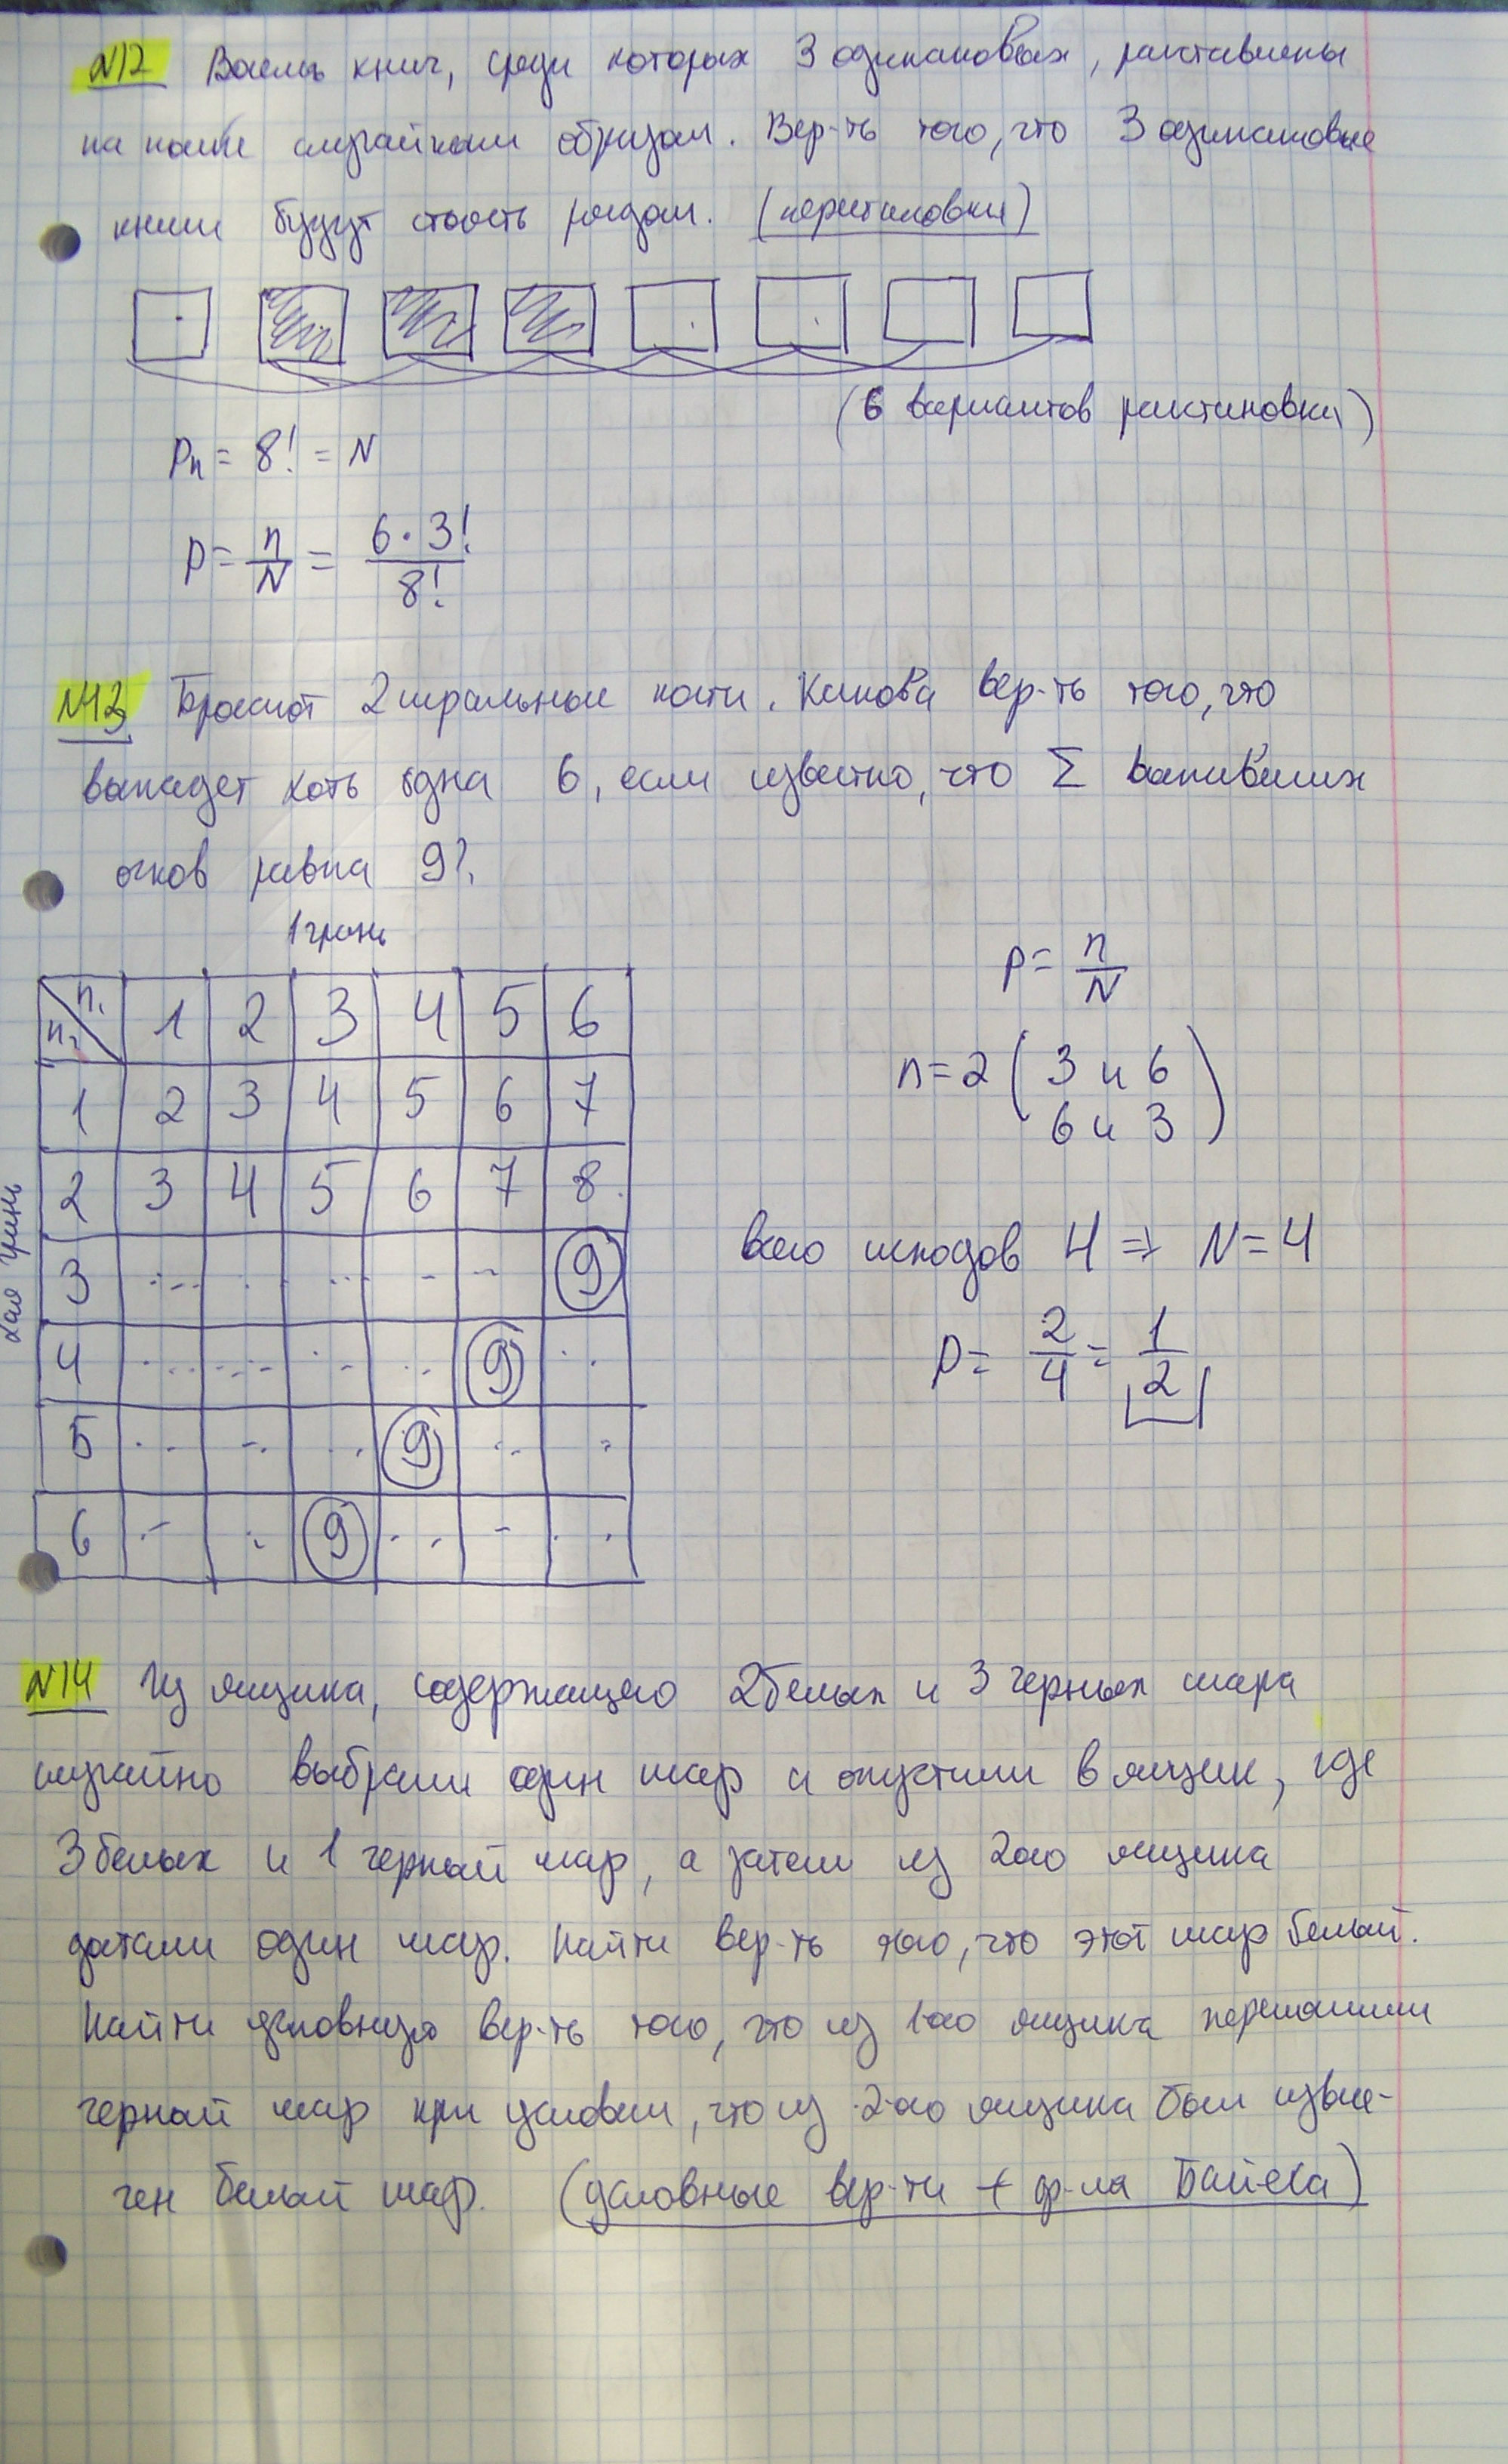 №12 Восемь книг, среди которых 3 одинаковых, расставлены
на полке случайным образом. Вер-ть того, что 3 одинаковые
книги будут стоять рядом. (перестановки)
(6 вариантов расстановки)
Pn = 8! = N
p = n/N = 6·3!/8!
№13 Бросают 2 игральные кости. Какова вер-ть того, что
выпадет хоть одна 6, если известно, что Σ выпавших
очков равна 9?
1 грань
n₁ n₂ 1 2 3 4 5 6
1 2 3 4 5 6 7
2 3 4 5 6 7 8
3 9
4 9
5 9
6 9
2ая грань
p = n/N
n = 2 (3 и 6
6 и 3)
всего исходов 4 ⇒ N = 4
p = 2/4 = 1/2
№14 Из ящика, содержащего 2 белых и 3 черных шара
случайно выбрали один шар и опустили в ящик, где
3 белых и 1 черный шар, а затем из 2ого ящика
достали один шар. Найти вер-ть того, что этот шар белый.
Найти условную вер-ть того, что из 1ого ящика переложили
черный шар при условии, что из 2-ого ящика был извле-
чен белый шар. (условные вер-ти + ф-ла Байеса)